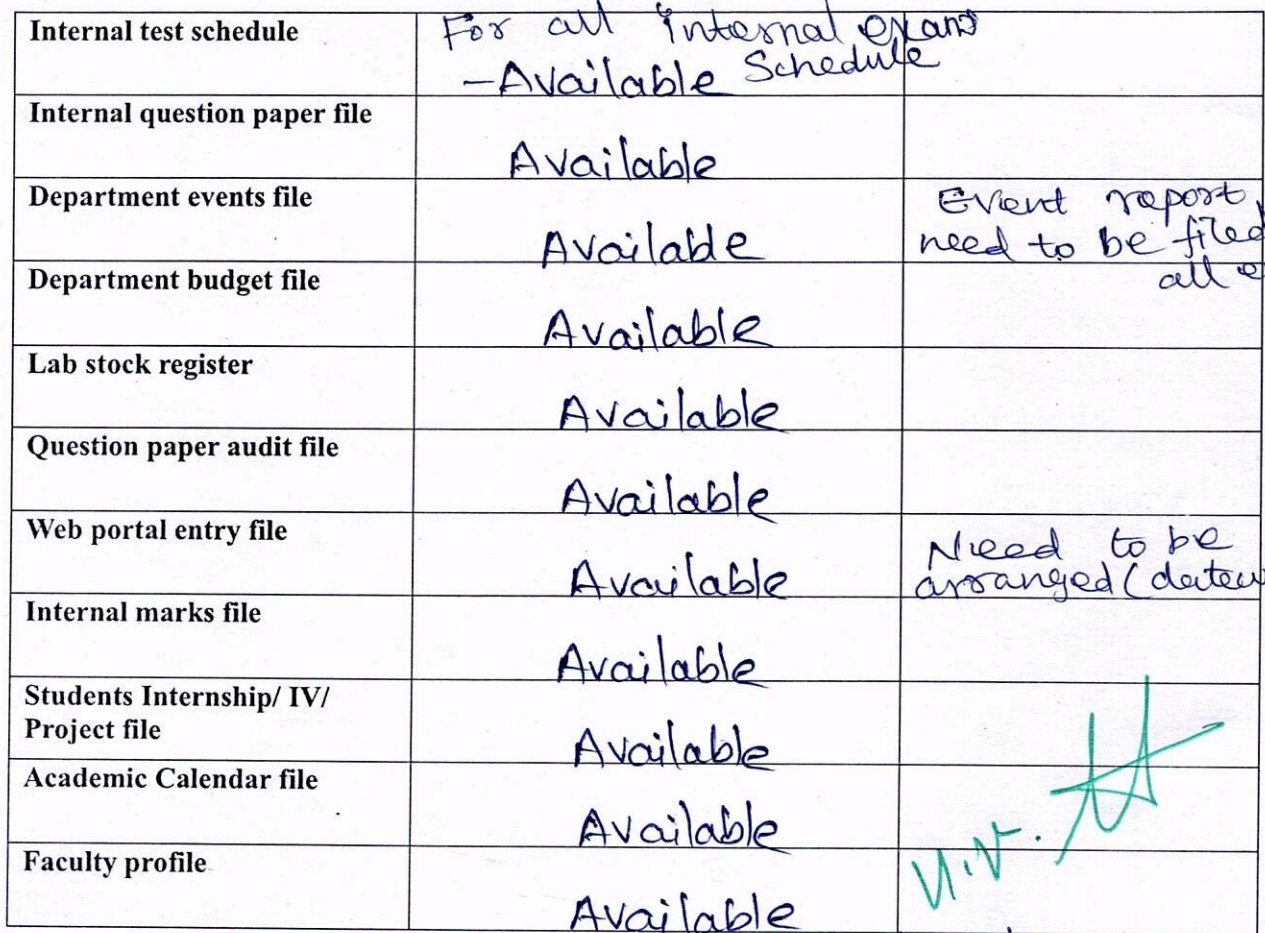 Internal test schedule
For all internal exams
-Available Schedule
Internal question paper file
Available
Department events file
Available
Event report
need to be filed
all
Department budget file
Available
Lab stock register
Available
Question paper audit file
Available
Web portal entry file
Available
Need to be
arranged (datew
Internal marks file
Available
Students Internship/ IV/
Project file
Available
Academic Calendar file
Available
Faculty profile
Available